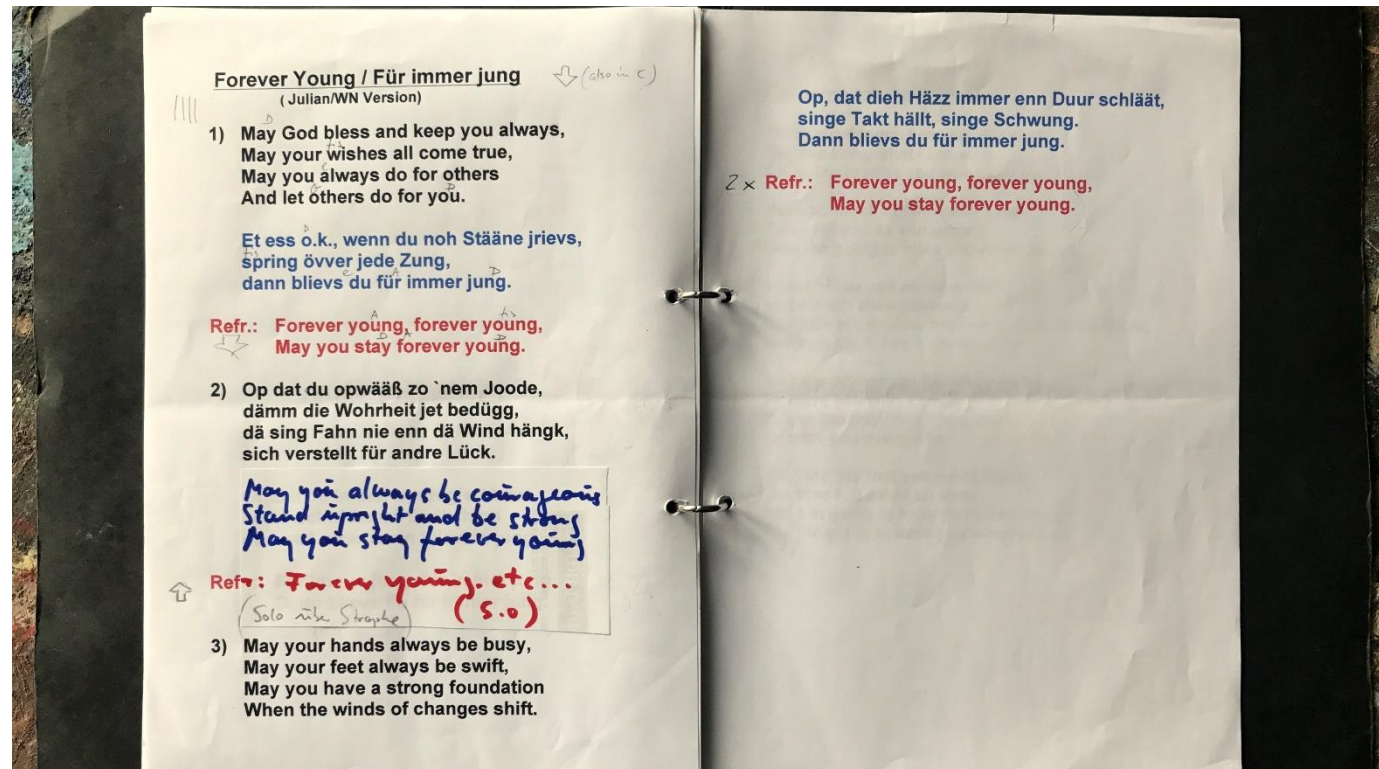 Forever Young / Für immer jung (also in C)
( Julian/WN Version)
D
1) May God bless and keep you always,
fis
May your wishes all come true,
May you always do for others
A D
And let others do for you.
D
Et ess o.k., wenn du noh Stääne jrievs,
fis
spring övver jede Zung,
e A D
dann blievs du für immer jung.
A fis
Refr.: Forever young, forever young,
D A D
May you stay forever young.
2) Op dat du opwääß zo `nem Joode,
dämm die Wohrheit jet bedügg,
dä sing Fahn nie enn dä Wind hängk,
sich verstellt für andre Lück.
May you always be courageous
Stand upright and be strong
May you stay forever young
Refr: Forever young. etc...
(Solo über Strophe) (s.o)
3) May your hands always be busy,
May your feet always be swift,
May you have a strong foundation
When the winds of changes shift.
Op, dat dieh Häzz immer enn Duur schläät,
singe Takt hällt, singe Schwung.
Dann blievs du für immer jung.
2x Refr.: Forever young, forever young,
May you stay forever young.